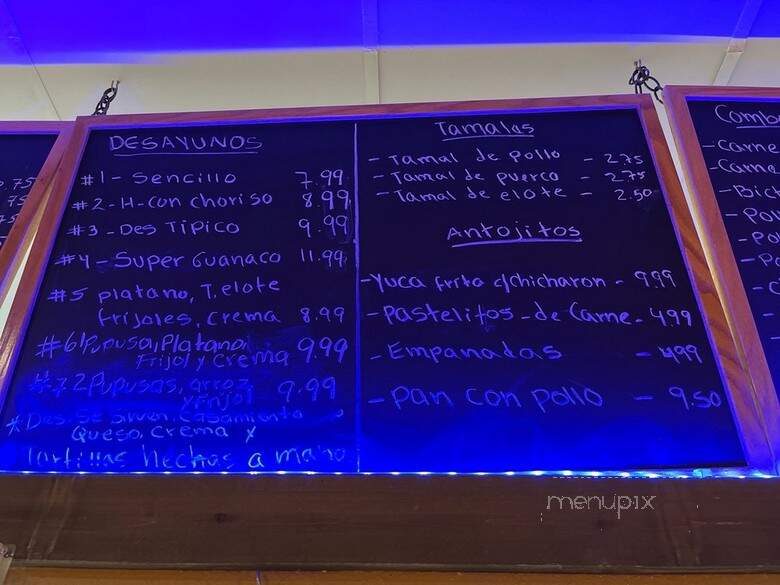 DESAYUNOS
#1 - Sencillo 7.99
#2 - H-con choriso 8.99
#3 - Des Tipico 9.99
#4 - Super Guanaco 11.99
#5 platano, T. elote
frijoles, crema 8.99
#6 Pupusa, Platano
Frijol y crema 9.99
#7 2 Pupusas, arroz
y Frijol 9.99
*Des. Se Sirven Casamiento
Queso, Crema y
Tortillas hechas a mano
Tamales
- Tamal de pollo - 2.75
- Tamal de puerco - 2.75
- Tamal de elote - 2.50
Antojitos
- Yuca frita c/chicharon - 9.99
- Pastelitos - de Carne - 4.99
- Empanadas - 4.99
- Pan con pollo - 9.50
Comb
- carne
- Carne
- Bic
- Po
- Po
menupix